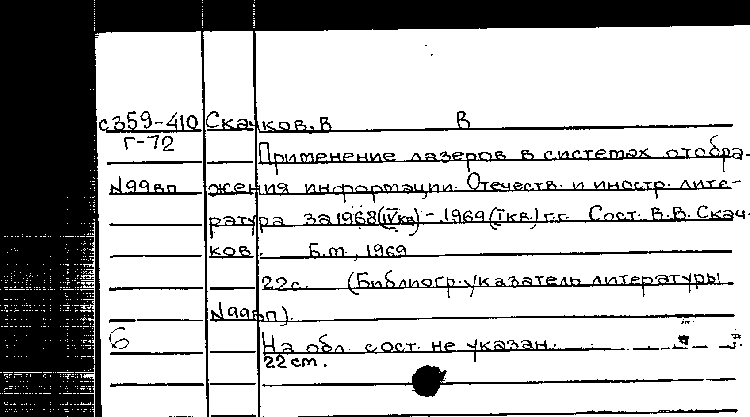 с359-410 Скачков, В В
Г-72
Применение лазеров в системах отобра-
N99вп жения информации. Отечеств. и иностр. лите-
ратура за 1968(IVкв)-1969(Iкв) г.г. Сост. В.В. Скач-
ков. Б.м., 1969
22с. (Библиогр. указатель литературы
N99вп).
6 На обл. сост. не указан.
22 cm.